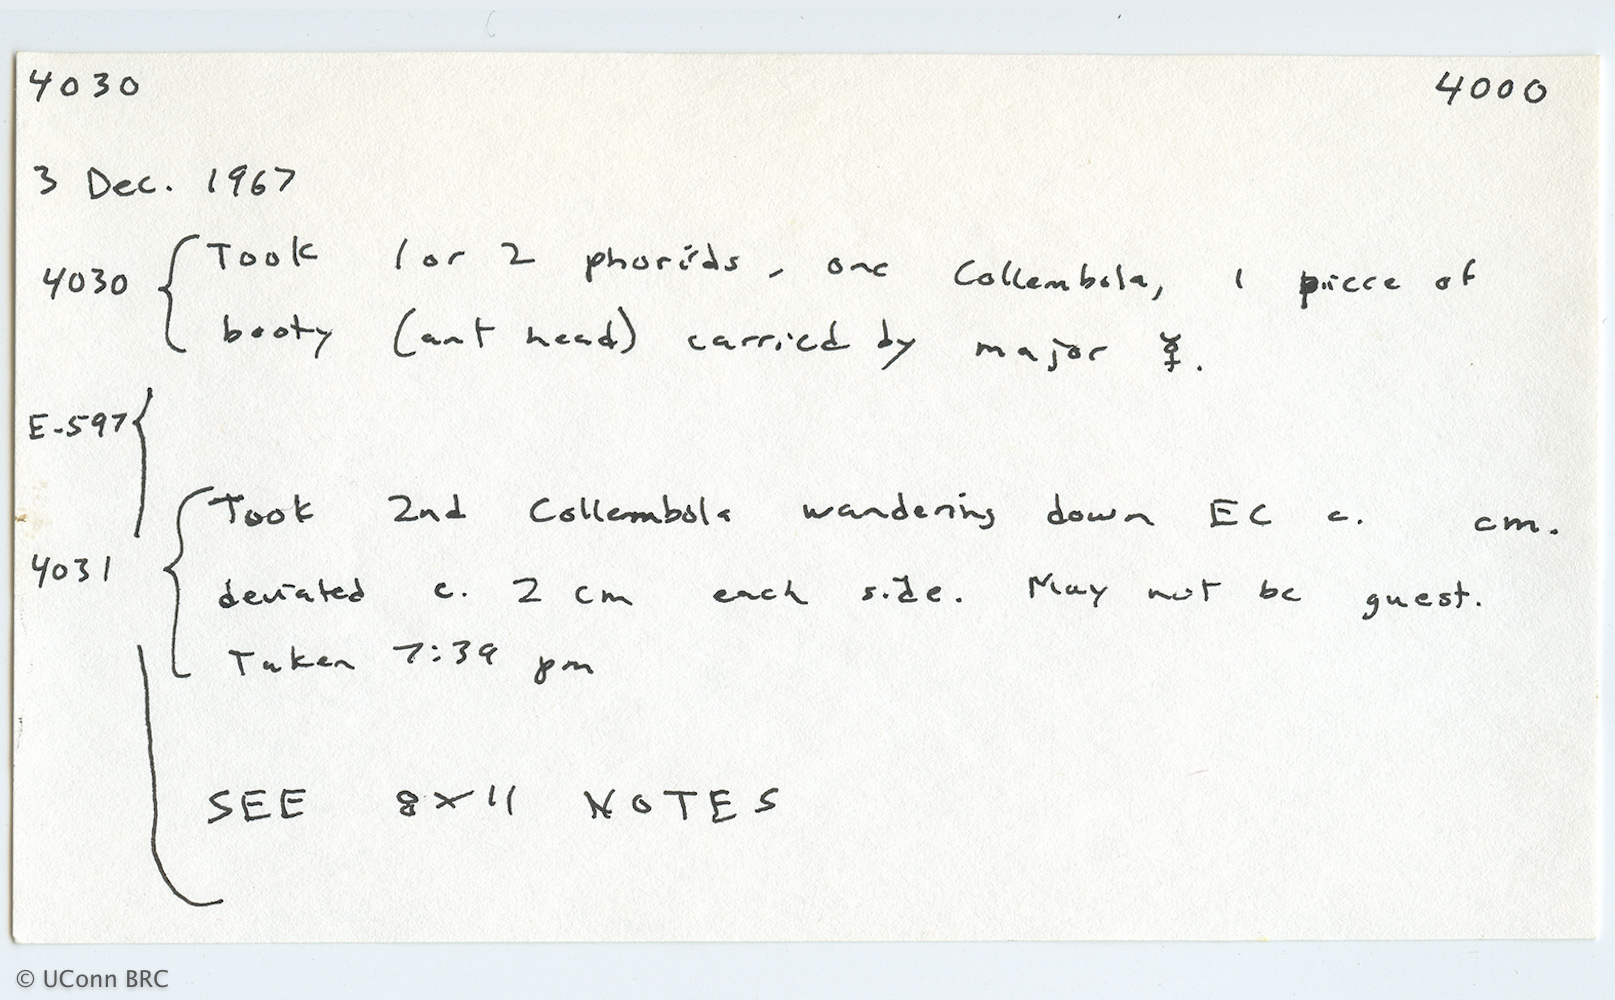 4030 4000
3 Dec. 1967
4030 { Took 1 or 2 phorids, one Collembola, 1 piece of
booty (ant head) carried by major ☿.
E-597 {
4031 { Took 2nd Collembola wandering down EC c. cm.
deviated c. 2 cm each side. May not be guest.
Taken 7:39 pm
SEE 8x11 NOTES
© UConn BRC